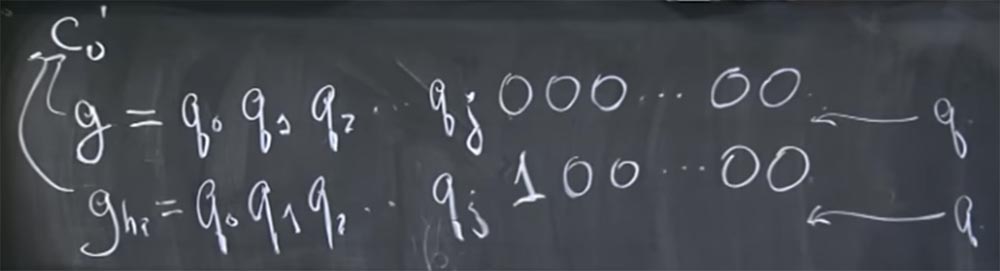 C₀'
g = q₀ q₁ q₂ ... q_j 0 0 0 ... 0 0 ← q
g_{hi} = q₀ q₁ q₂ ... q_j 1 0 0 ... 0 0 ← q